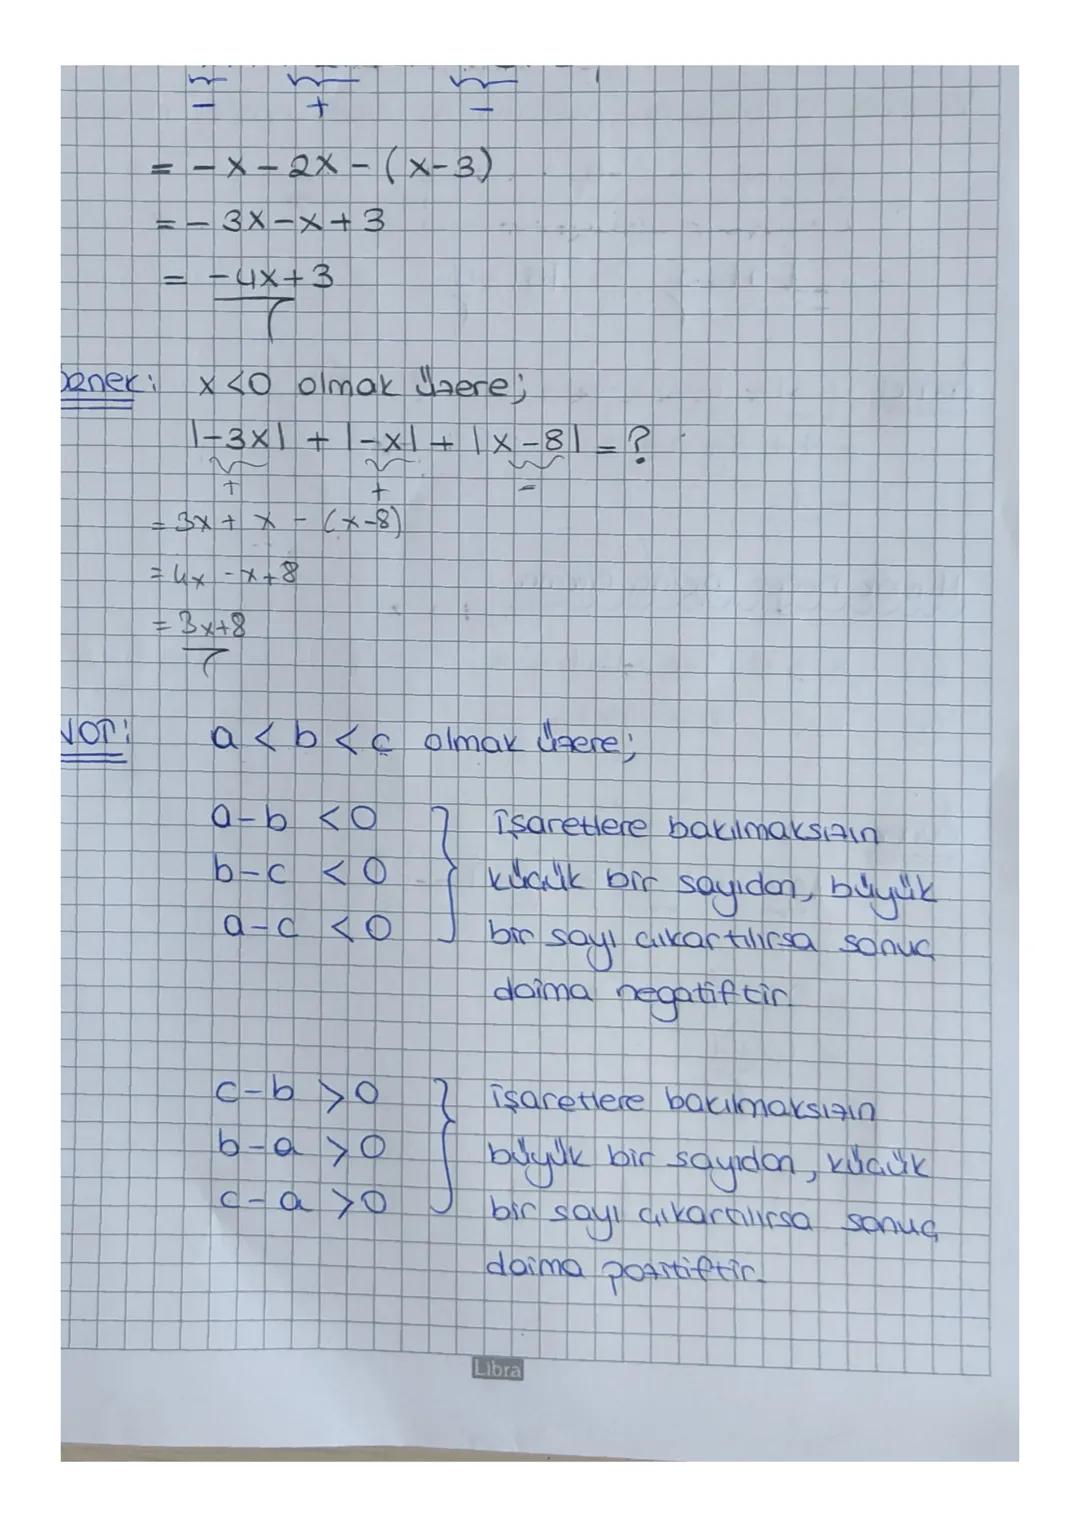 - + -
= -x - 2x - (x-3)
= - 3x - x + 3
= -4x + 3
x<0 olmak üzere;
|-3x| + |-x| + |x-8| = ?
+ + -
= 3x + x - (x-8)
= 4x - x + 8
= 3x+8
NOT: a < b < c olmak üzere;
a-b < 0 işaretlere bakılmaksızın
b-c < 0 küçük bir sayıdan, büyük
a-c < 0 bir sayı çıkartılırsa sonuç
daima negatiftir.
c-b > 0 işaretlere bakılmaksızın
b-a > 0 büyük bir sayıdan, küçük
c-a > 0 bir sayı çıkartılırsa sonuç
daima pozitiftir.
Libra